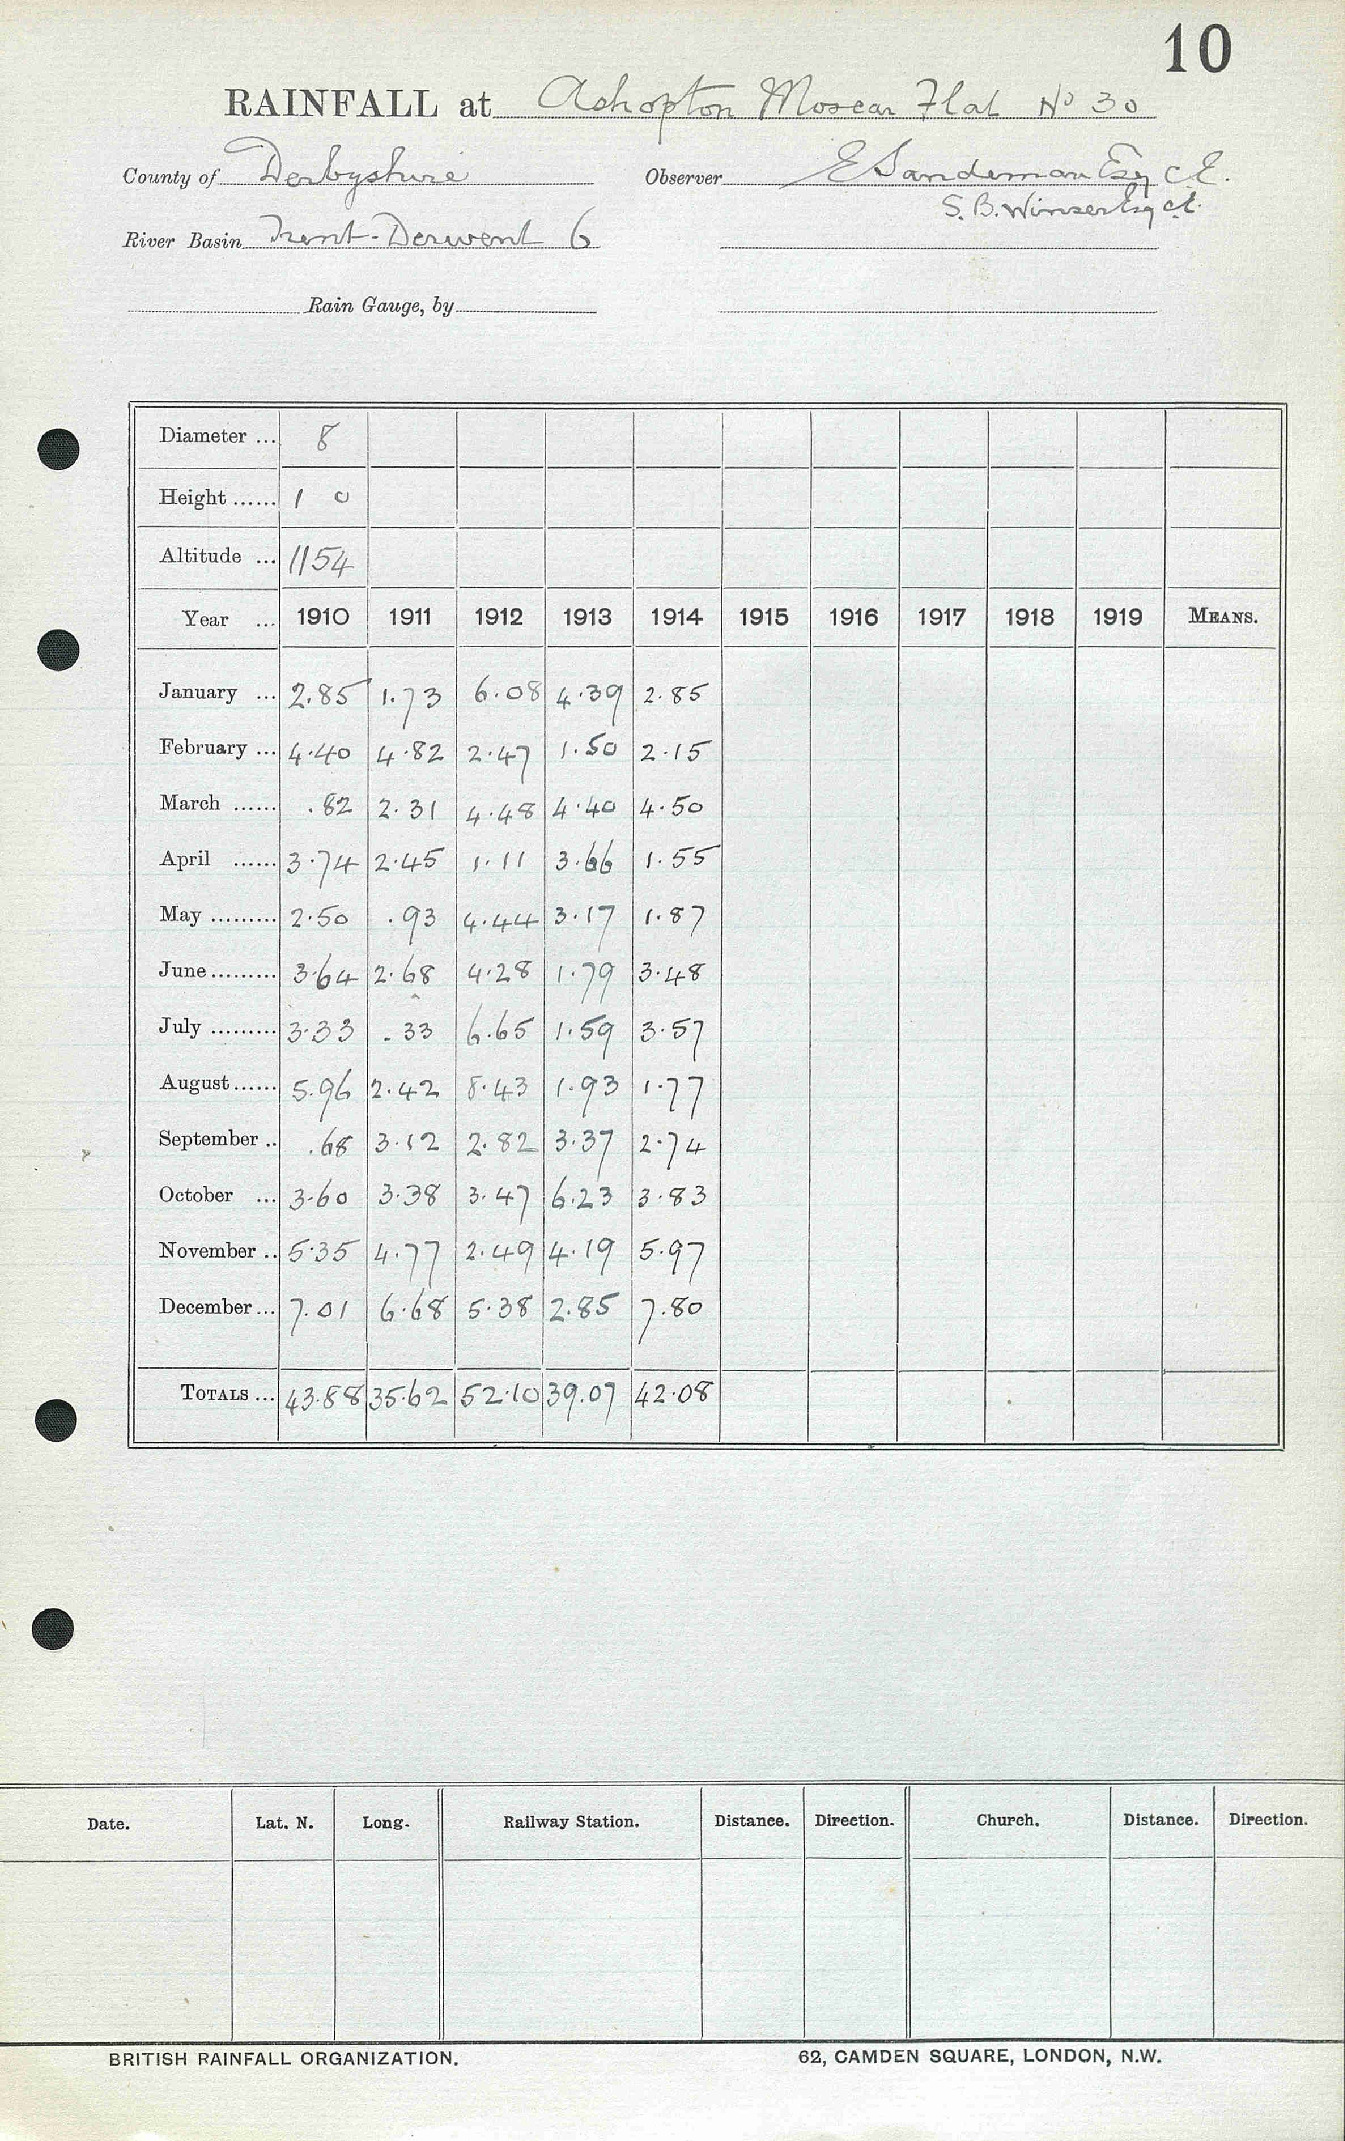 10
RAINFALL at Ashopton Moscar Flat No 30
County of Derbyshire Observer E Sandeman Esq C.E.
S. B. Winser Esq C.E.
River Basin Trent-Derwent 6
Rain Gauge, by
Diameter ... 8
Height ...... 1 0
Altitude ... 1154
Year ... 1910 1911 1912 1913 1914 1915 1916 1917 1918 1919 MEANS.
January ... 2.85 1.73 6.08 4.39 2.85
February ... 4.40 4.82 2.47 1.50 2.15
March ...... .82 2.31 4.48 4.40 4.50
April ...... 3.74 2.45 1.11 3.66 1.55
May ......... 2.50 .93 4.44 3.17 1.87
June ......... 3.64 2.68 4.28 1.79 3.48
July ......... 3.33 .33 6.65 1.59 3.57
August ...... 5.96 2.42 8.43 1.93 1.77
September .. .68 3.12 2.82 3.37 2.74
October ... 3.60 3.38 3.47 6.23 3.83
November .. 5.35 4.77 2.49 4.19 5.97
December ... 7.01 6.68 5.38 2.85 7.80
TOTALS ... 43.88 35.62 52.10 39.07 42.08
Date. Lat. N. Long. Railway Station. Distance. Direction. Church. Distance. Direction.
BRITISH RAINFALL ORGANIZATION. 62, CAMDEN SQUARE, LONDON, N.W.